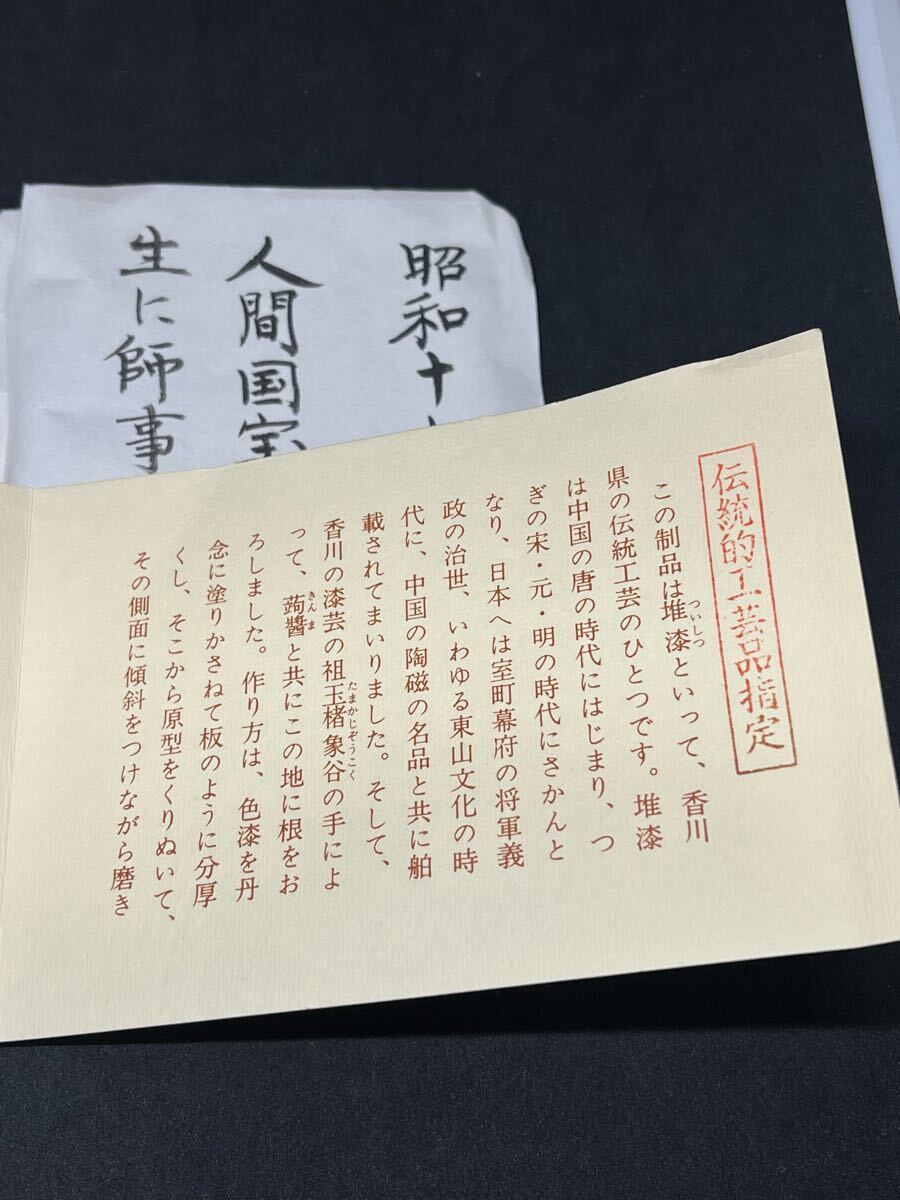 昭和十
人間国宝
生に師事
伝統的工芸品指定
この制品は堆漆といって、香川
県の伝統工芸のひとつです。堆漆
は中国の唐の時代にはじまり、つ
ぎの宋・元・明の時代にさかんと
なり、日本へは室町幕府の将軍義
政の治世、いわゆる東山文化の時
代に、中国の陶磁の名品と共に舶
載されてまいりました。そして、
香川の漆芸の祖玉楮象谷の手によ
って、蒟醬と共にこの地に根をお
ろしました。作り方は、色漆を丹
念に塗りかさねて板のように分厚
くし、そこから原型をくりぬいて、
その側面に傾斜をつけながら磨き
ついしつ
たまかじぞうこく
きんま